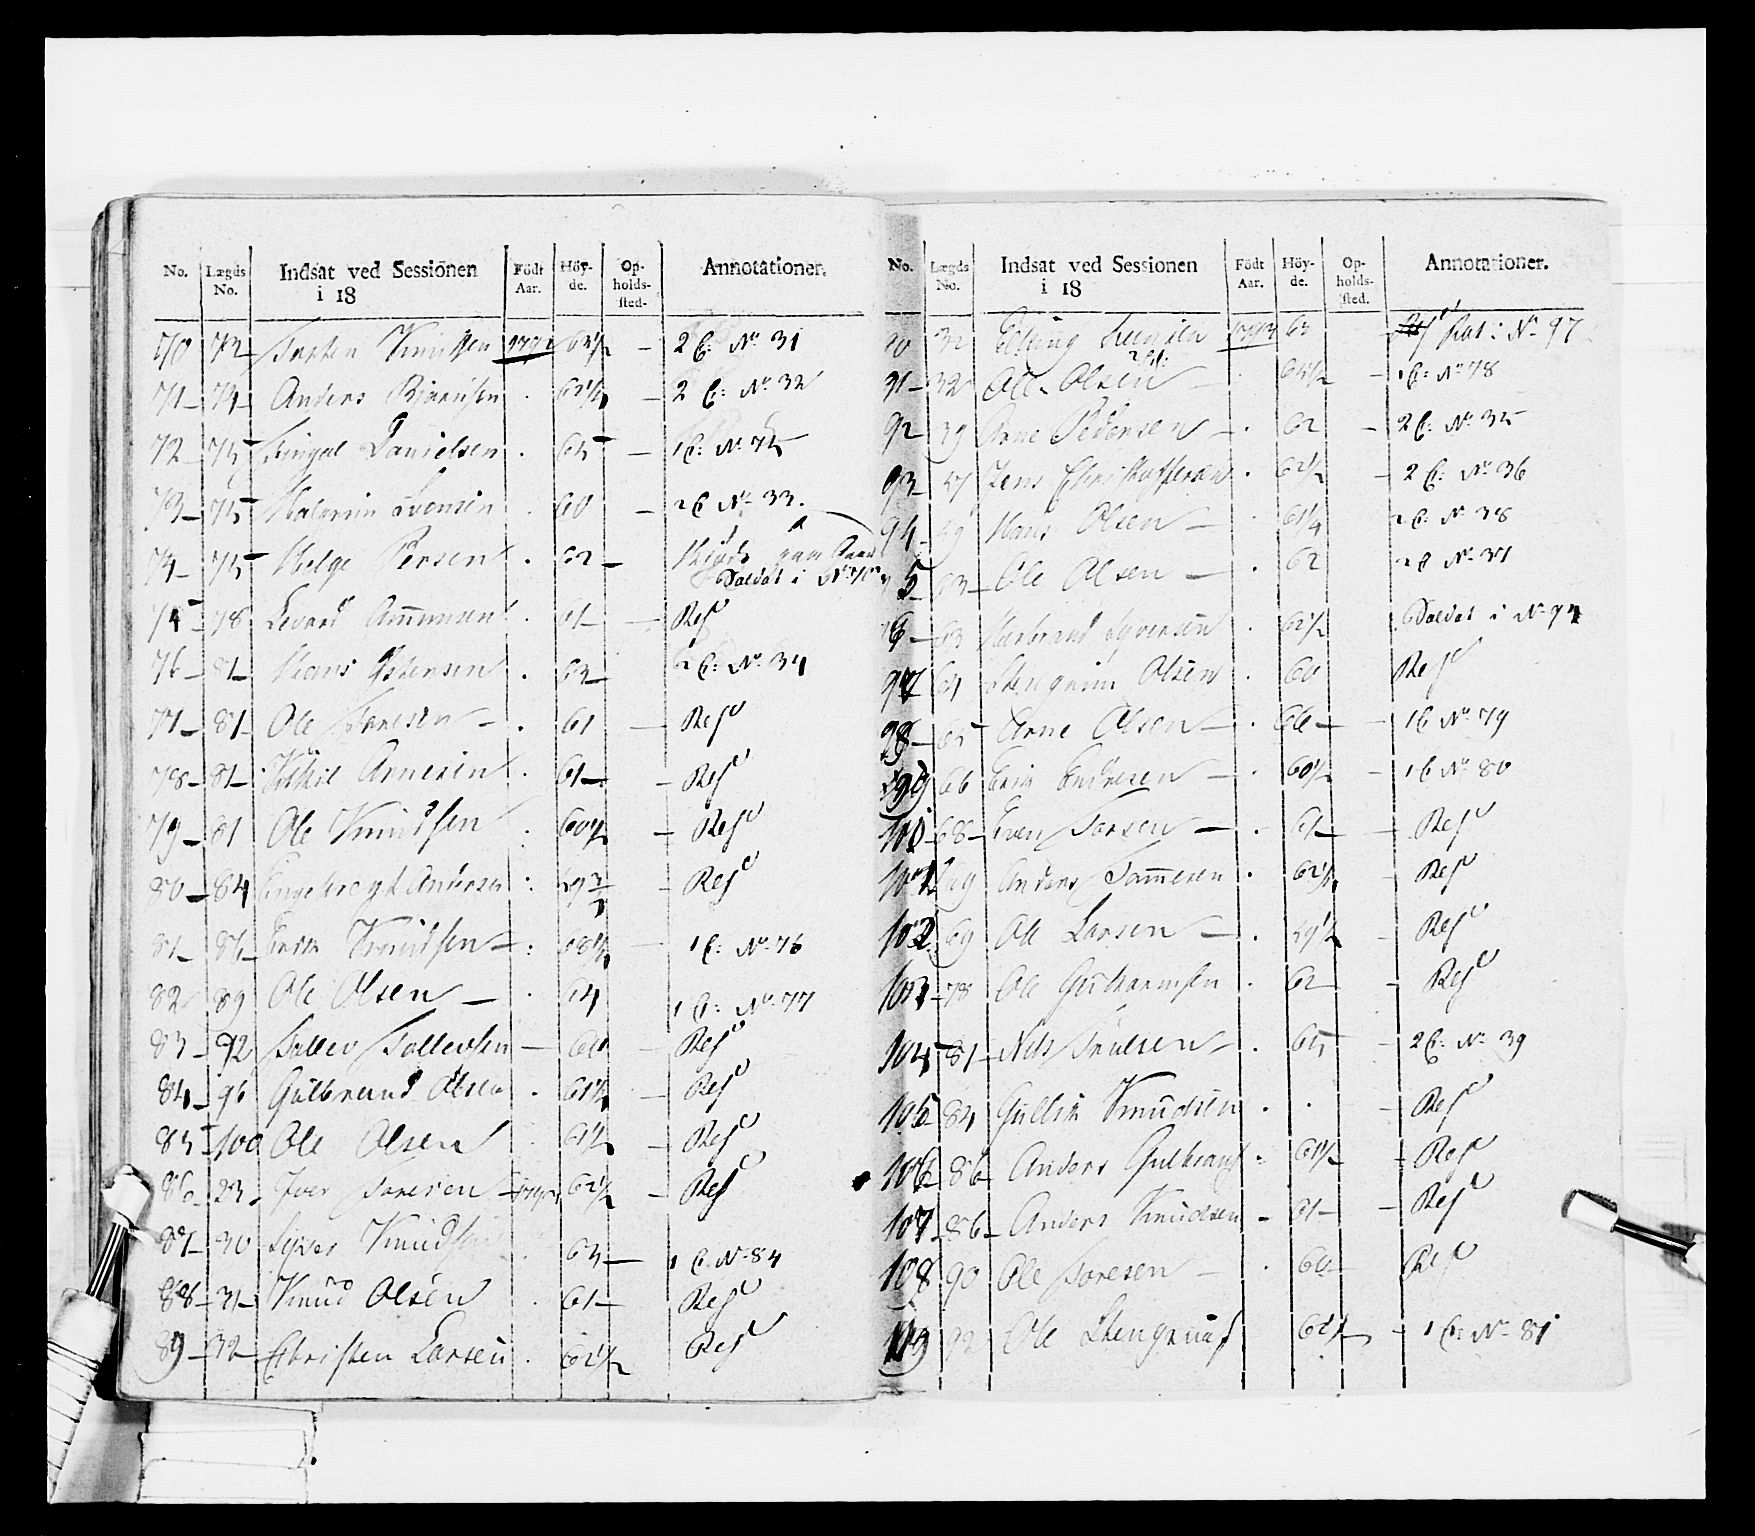 No. Lægds No. Indsat ved Sessionen i 18 Födt Aar. Höyde. Opholdssted. Annotationer.
70 72 Torsten Knudsen 1772 63½ — 2 C: No 31
71 — 74 — Anders Biørnsen . 62½ — 2 C: No 32
72 75 Danielsen . 65 — 1 C: No 75
73 — 75 Svensen . 60 — 2 C No 33.
74 — 75 Helge Persen . 62 —
Soldat i No
78 Levord Amunsen . 61 — Resv
76 — 81 — Hans Ostensen . 63 — 2 C: No 34
77 — 81 — Ole Toresen — . 61 — Resv
78 — 81 — Arnesen . 61 — Resv
79 — 81 Ole Knudsen . 60½ — Resv
80 — 84 Engebregt Andersen : — Resv
81 — 86 — Knudsen — : — 1 C: No 76
82 89 Ole Olsen — . 64 1 C: No 77
83 — 92 Tollev Tollevsen — 60 — Resv
84 — 96 Gulbrand Olsen . 61½ — Resv
85 100 Ole Olsen 61½ — Resv
86 23 Iver Toresen 62½ — Resv
87 — 30 Syver Knudsen 63 — 1 C. No 84
88 — 31 — Knud Olsen . 61 — Resv
89 — 32 — Christen Larsen . 62½ Resv
No. Lægds No. Indsat ved Sessionen i 18 Födt Aar. Höyde. Opholdssted. Annotationer.
90 32 63 — No 97
91 — 32 Ole Olsen — . 64½ — 1 C: No 78
92 39 Arne Pedersen — . 62 — 2 C: No 35
93 — 47 Jens Christoffersen . 62½ — 2 C: No 36
94 — 49 Hans Olsen — . 61¼ 2 C: No 38
5 — 53 — Ole Olsen — . 62 2 C No 37
96 — 63 Syversen . 62½ Soldat i No 94
97 64 Stengrim Olsen . 60 Resv
98 — 65 Arne Olsen — . 66 — — 1 C No 79
99 66 Erik Endresen — . 60½ — 1 C No 80
100 68 — Even Torsen — . 61 — — Resv
101 69 Anders Tommesen . 62½ Resv
102 69 Ole Larsen — . 59½ — Resv
103 — 78 Ole . 62 — Resv
104 81 — Nils Truelsen — . 65 — 2 C: No 39
105 84 Gullik Knudsen . . — Resv
106 86 Anders Gulbrans : 61½ — Resv
107 — 86 — Anders Knudsen — 61 — — Resv
108 90 Ole Toresen — . 60 Resv
109 92 Ole Stengrims 62½ — 1 C: No 81